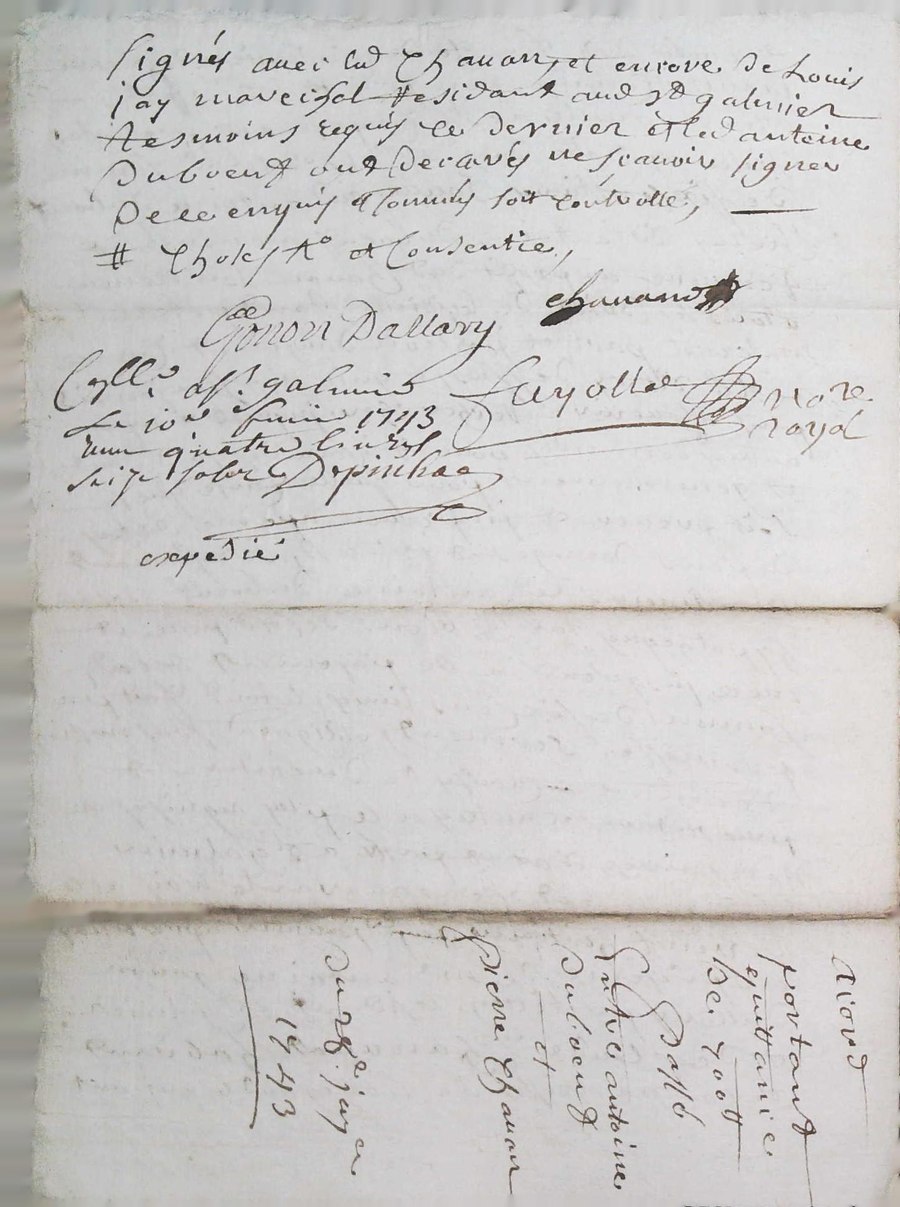 signés avec led Chavan, et encore de Louis
jay marechal residant aud st galmier
tesmoins requis ce dernier et led antoine
Duboeuf ont declarés ne scavoir signer
De ce enquis et sommés soit controllé,
# et consentie,
Gonon Dallary
chavand
Cllé a st galmier
Le 10e juin 1743
Reçu quatre livres
seize sols Depinhac
fayolle nore
royal
expedié
acord
portant
quittance
De. 700 tt
Passé
Entre antoine
Duboeuf
et
pierre Chavan
Du 28 may
1743